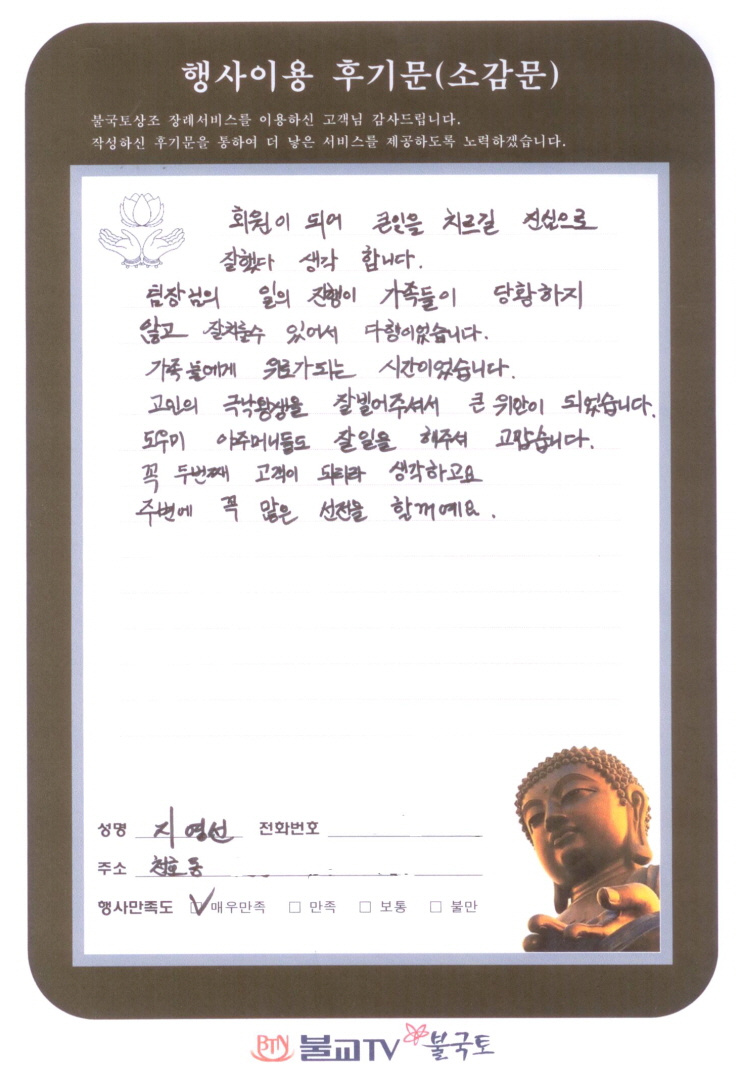 행사이용 후기문(소감문)
불국토상조 장례서비스를 이용하신 고객님 감사드립니다.
작성하신 후기문을 통하여 더 낳은 서비스를 제공하도록 노력하겠습니다.
회원이 되어 큰일을 치르길 진심으로
잘했다 생각 합니다.
팀장님의 일의 진행이 가족들이 당황하지
않고 잘치룰수 있어서 다행이었습니다.
가족들에게 위로가되는 시간이었습니다.
고인의 극락왕생을 잘빌어주셔서 큰 위안이 되었습니다.
도우미 아주머니들도 잘일을 해주셔 고맙습니다.
꼭 두번째 고객이 되리라 생각하고요
주변에 꼭 많은 선전을 할꺼예요.
성명 지영선 전화번호
주소 천호동
행사만족도 매우만족 만족 보통 불만
BTN 불교TV 불국토